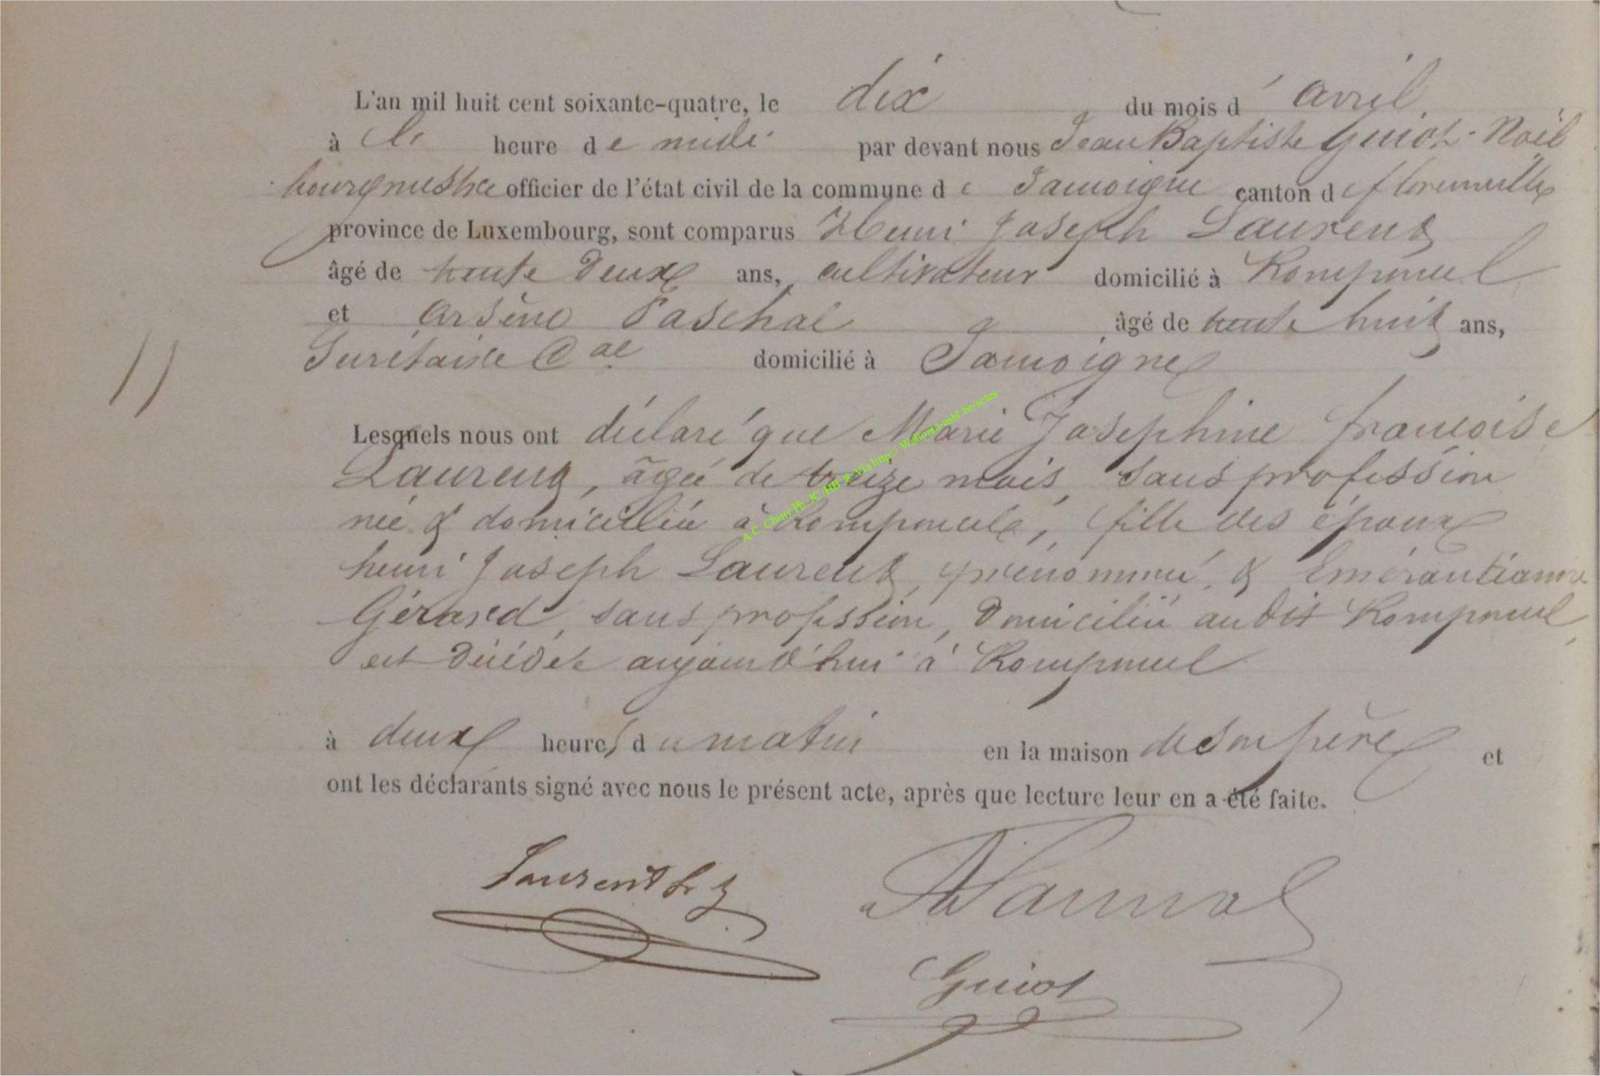 L'an mil huit cent soixante-quatre, le dix du mois d' avril
à la heure de midi par devant nous Jean Baptiste Guiot-Noël
bourgmestre officier de l'état civil de la commune de Jamoigne canton de florenville
province de Luxembourg, sont comparus Henri Joseph Laurent
âgé de trente deux ans, cultivateur domicilié à Romponcel
et arsène Paschal âgé de trente huit ans,
Secrétaire Cal domicilié à Jamoigne
11
Lesquels nous ont déclaré que Marie Josephine françoise
Laurent, âgée de treize mois, sans profession
née & domiciliée à Romponcel, fille des époux
henri Joseph Laurent, prénommé, & Emérantianne
Gérard, sans profession, domiciliée audit Romponcel
est décédée aujourd'hui à Romponcel
à deux heures du matin en la maison de son père et
ont les déclarants signé avec nous le présent acte, après que lecture leur en a été faite.
Laurent
Guiot